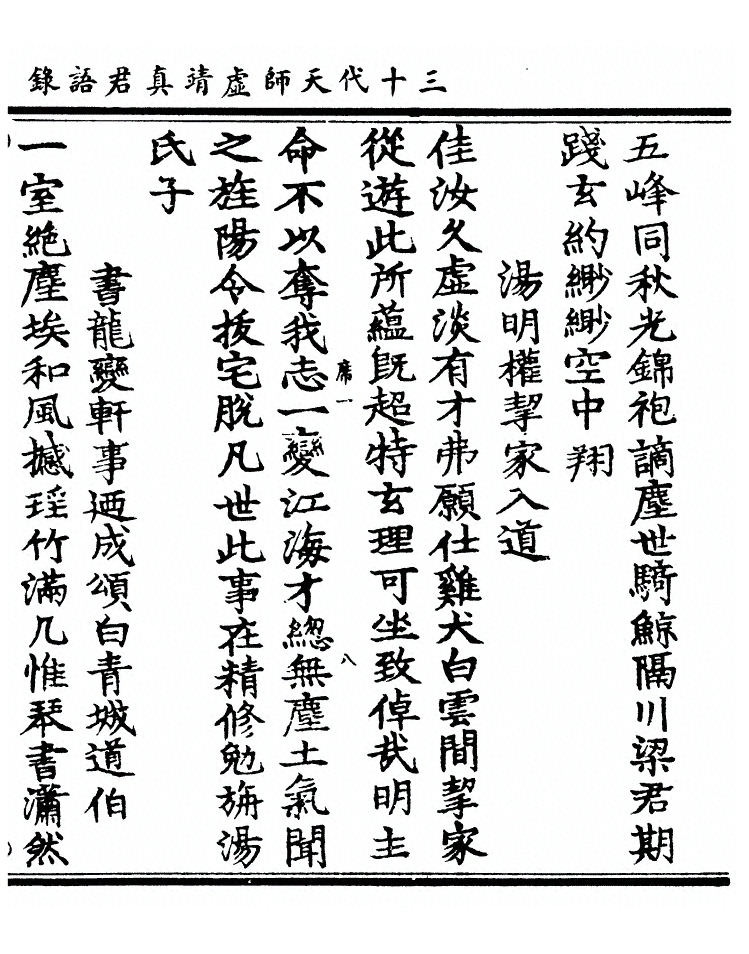 三十代天師虛靖真君語錄
五峰同秋光錦袍謫塵世騎鯨隔川梁君期
踐玄約緲緲空中翔
湯明權挈家入道
佳汝久虛淡有才弗願仕雞犬白雲間挈家
從遊此所蘊既超特玄理可坐致倬哉明主
席一
八
命不以奪我志一變江海才總無塵土氣聞
之旌陽令拔宅脫凡世此事在精修勉旃湯
氏子
書龍變軒事迺成頌白青城道伯
一室絶塵埃和風撼瑶竹滿几惟琴書瀟然